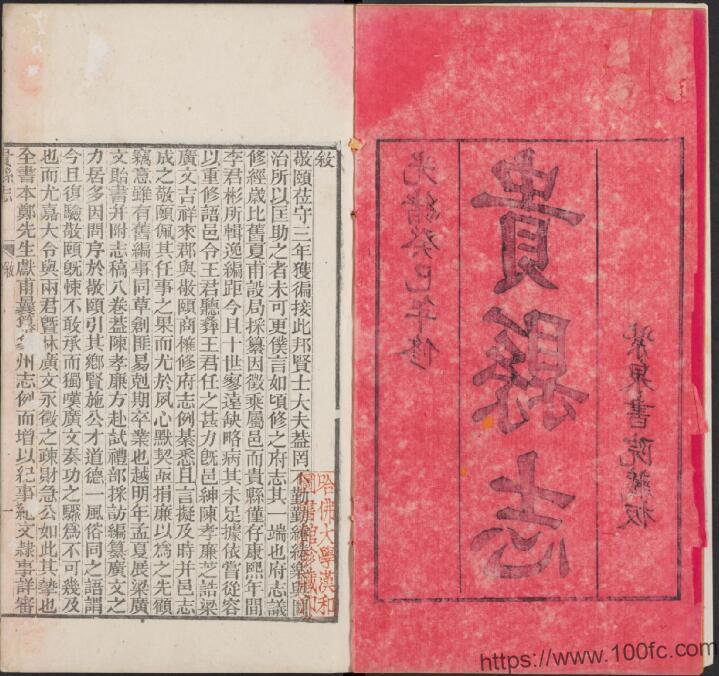 光緒癸巳年修
貴縣志
紫泉書院藏板
敘
敬頤莅守三年獲徧接此邦賢士大夫葢罔不勤勤樂與圖
治所以匡助之者未可更僕言如頃修之府志其一端也府志議
修經歲比舊夏甫設局採纂因徵乘屬邑而貴縣僅存康熙年間
李君彬所輯逸編距今且十世寥遠缺略病其未足據依嘗從容
以重修語邑令王君聽彝王君任之甚力既邑紳陳孝廉芝誥梁
廣文吉祥來郡與敬頤商榷修府志例綦悉且言擬及時并邑志
成之敬頤佩其任事之果而尤於夙心默契亟捐廉以為之先顧
竊意雖有舊編事同草創匪易剋期卒業也越明年孟夏展梁廣
文貽書并附志稿八卷葢陳孝廉方赴試禮部採訪編纂廣文之
力居多因問序於敬頤引其鄉賢施公才道德一風俗同之語謂
今且復驗敬頤既悚不敢承而獨嘆廣文奏功之驟為不可幾及
也而尤嘉大令與兩君暨林廣文永徵之疎財急公如此其摯也
全書本鄭先生獻甫州志例而增以紀事紀文隸事詳審
貴縣志 敘 一
哈佛大學漢和
圖書館珍藏印
https://www.100fc.com